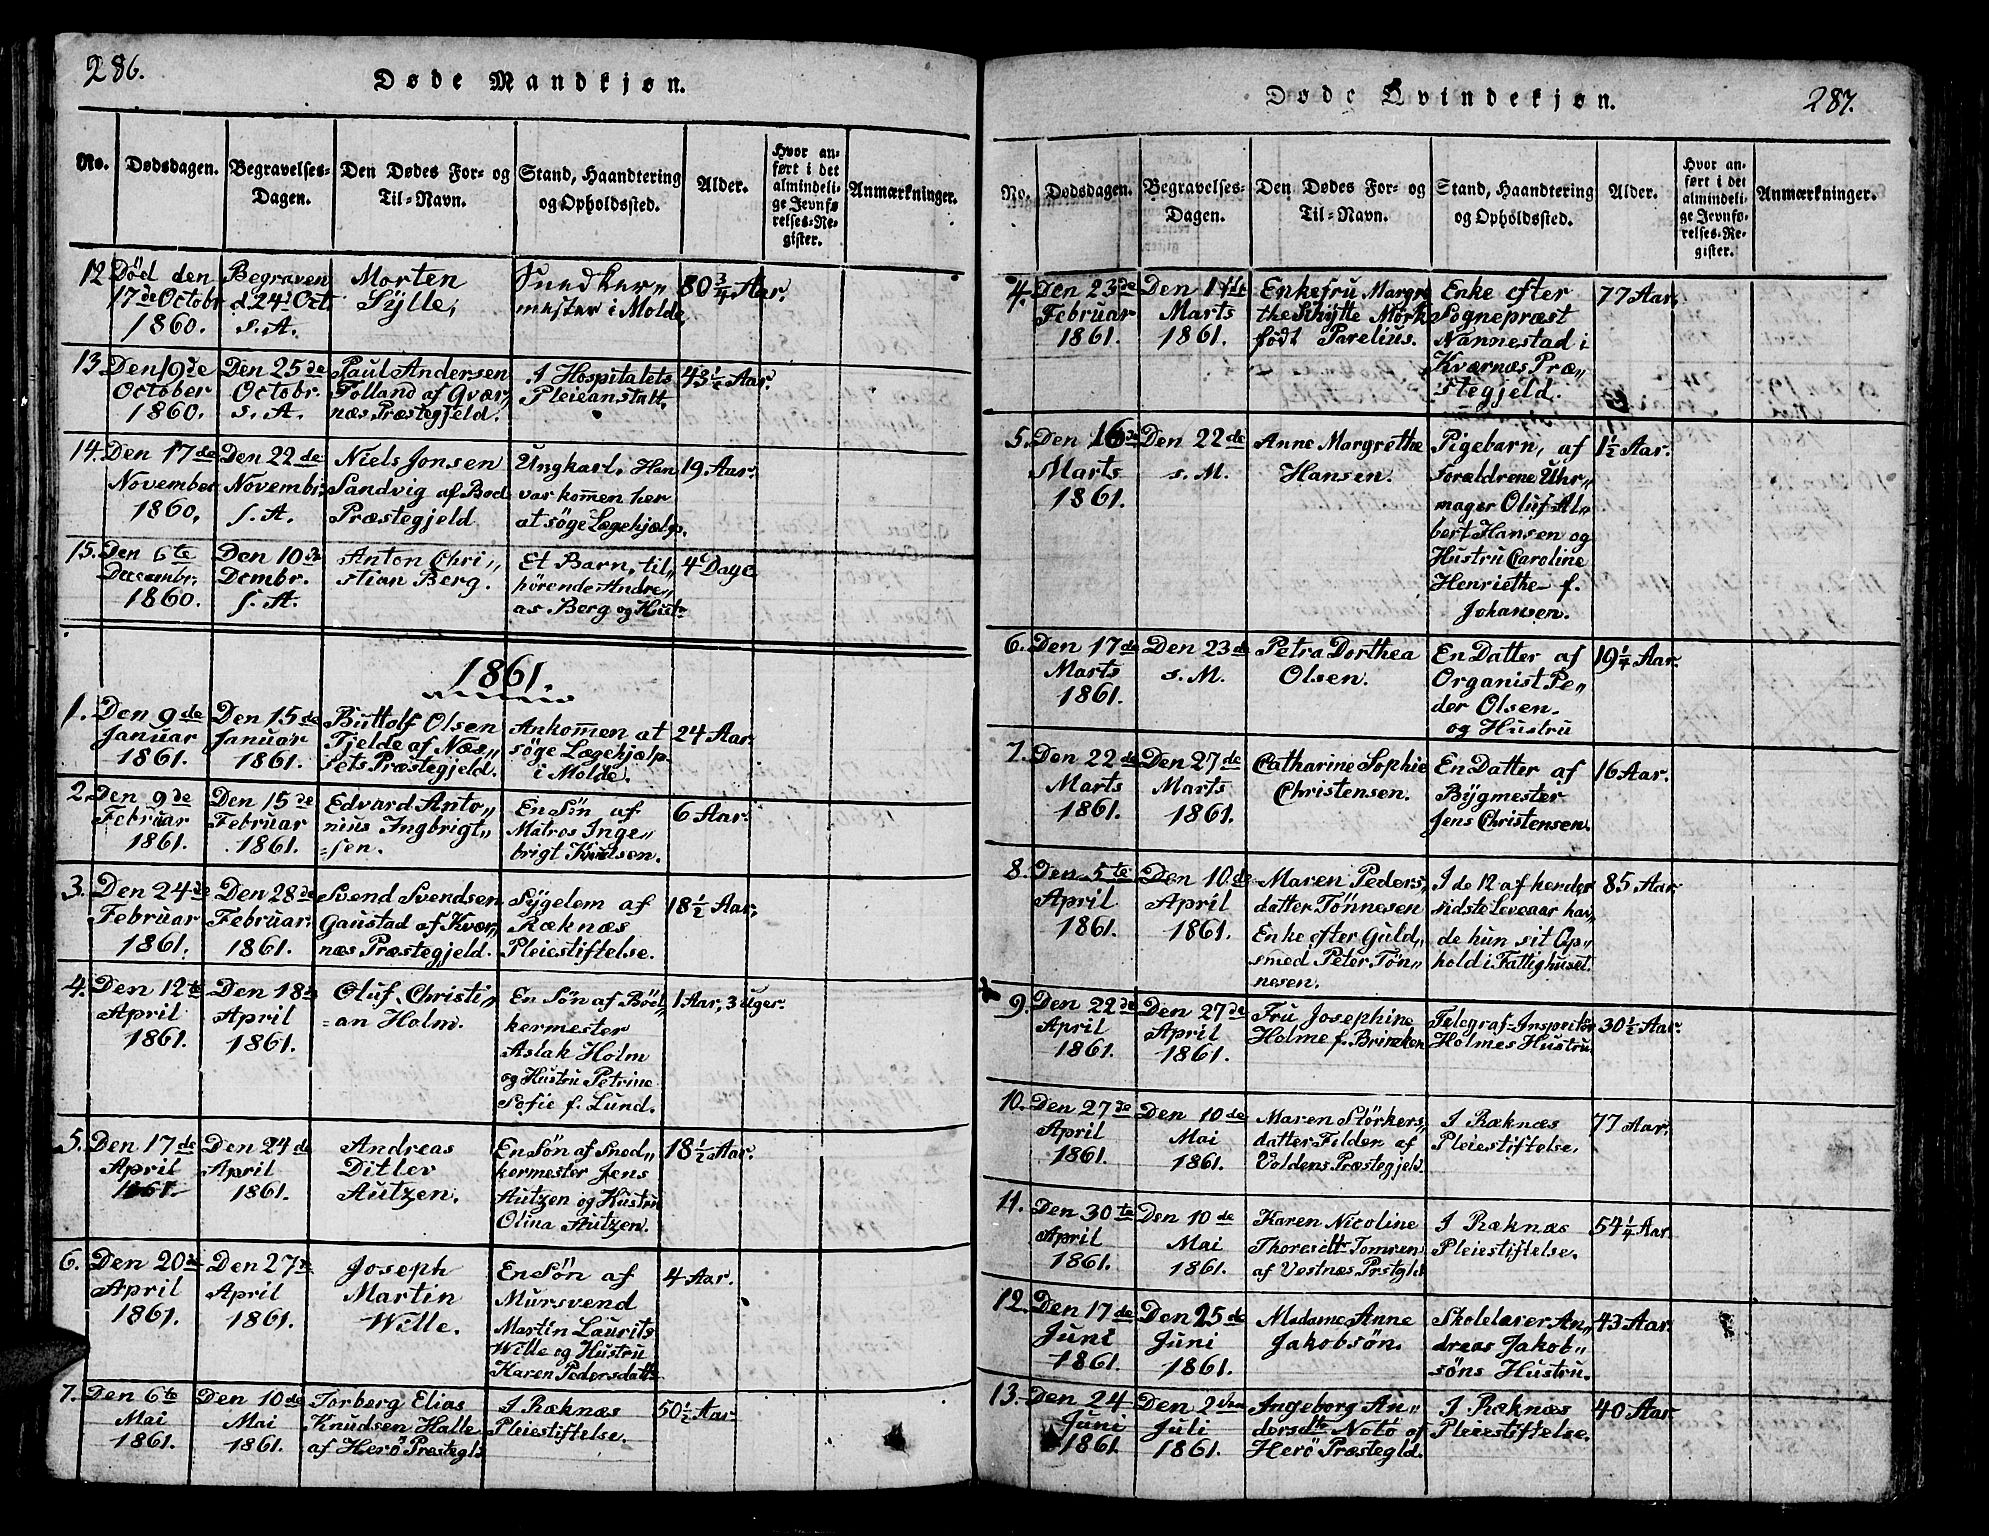 286.
Døde Mandkjøn.
No.
Dødsdagen.
Begravelses-
Dagen.
Den Dødes For- og
Til-Navn.
Stand, Haandtering
og Opholdssted.
Alder.
Hvor an-
ført i det
almindeli-
ge Jevnfø
relses-Re-
gister.
Anmærkninger.
12
Død den
17de Octobr
1860.
Begraven
d. 24d Oct.
s. A.
Morten
Sylle,
Snedker„
mester i Molde,
80 3/4 Aar.
13
Den 19de
October
1860.
Den 25de
Octobr.
s. A.
Paul Andersen
Folland af Qvær„
næs Præstegjeld.
I Hospitalets
Pleieanstalt.
43 1/2 Aar.
14.
Den 17de
November
1860,
Den 22de
Novembr.
s. A.
Niels Jonsen
Sandvig af Bod
Præstegjeld
Ungkarl, Han
var kommen her
at søge Lægehjælp.
19 Aar.
15.
Den 6te
Decembr.
1860.
Den 10de
Dcembr.
s. A.
Anton Chri„
stian Berg.
Et Barn, til„
hörende Andre„
as Berg og Hustr
4 Dage
1861.
1.
Den 9de
Januar
1861.
Den 15de
Januar
1861.
Buttolf Olsen
Tjelde af Næs„
sets Præstegjeld.
Ankom̄en at
söge Lægehjælp
i Molde.
24 Aar.
2.
Den 9de
Februar
1861.
Den 15de
Februar
1861.
Edvard Anto„
nius Ingbrigt„
=sen.
En Sön af
Matros Inge„
brigt Knudsen.
6 Aar.
3.
Den 24de
Februar
1861.
Den 28de
Februar.
1861.
Svend Svendsen
Gaustad af Kvær
næs Præstegjeld.
Sygelem af
Ræknæs
Pleiestiftelse.
18 1/2 Aar,
4.
Den 12te
April
1861.
Den 18de
April
1861.
Oluf Christi„
=an Holm.
En Sön af Böd„
kermester
Aslak Holm
og Hustru Petrine
Sofie f. Lund.
1 Aar, 3 uger.
5.
Den 17de
April
1861.
Den 24de
April
1861.
Andreas
Ditlev
Autzen.
En Sön af Sned„
kermester Jens
Autzen og Hustru
Olina Autzen.
18 1/2 Aar.
6.
Den 20de
April
1861.
Den 27de
April
1861.
Joseph
Martin
Wille.
En Sön af
Mursvend
Martin Laurits
Wille og Hustru
Karen Pedersdattr
4 Aar.
7.
Den 6te
Mai
1861.
Den 10de
Mai
1861.
Torberg Elias
Knudsen Halle
af Herö Præstegld
I Ræknæs
Pleiestiftelse.
50 1/2 Aar.
Døde Qvindekjøn.
287.
No.
Dødsdagen.
Begravelses-
Dagen.
Den Dødes For- og
Til-Navn.
Stand, Haandtering
og Opholdssted.
Alder.
Hvor an-
ført i det
almindeli-
ge Jevnfø-
relses-Re-
gister.
Anmærkninger.
4.
Den 23de
Februar
1861.
Den 1de
Marts
1861.
Enkefru Margre
the Schytte Mörk
födt Parelius.
Enke efter
Sognepræst
Nannestad i
Kværnæs Præ„
stegjeld.
77 Aar.
5.
Den 16de
Marts
1861.
Den 22de
s. M.
Anne Margrethe
Hansen.
Pigebarn, af
Forældrene Uhr„
mager Oluf Al„
bert Hansen og
Hustru Caroline
Henriethe f.
Johansen.
1 1/2 Aar.
6.
Den 17de
Marts
1861.
Den 23de
s. M.
Petra Dorthea
Olsen.
En Datter af
Organist Pe„
der Olsen.
og Hustru
19 1/4 Aar.
7.
Den 22de
Marts
1861.
Den 27de
Marts
1861.
Catharine Sophie
Christensen.
En Datter af
Bygmester
Jens Christensen.
16 Aar.
8.
Den 5te
April
1861.
Den 10de
April
1861.
Maren Peders„
datter Tönnesen
Enke efter Guld„
smed Peter Tön„
nesen.
I de 12 af hendes
sidste Leveaar hav„
de hun sit Op„
hold i Fattighuset.
85 Aar.
9.
Den 22de
April
1861.
Den 27de
April
1861.
Fru Josephine
Holme f. Brincken
Telegraf-Inspektör
Holmes Hustru.
30 1/2 Aar.
10.
Den 27de
April
1861.
Den 10de
Mai
1861.
Maren Störkers„
datter Filder af
Voldens Præstegjeld.
I Ræknæs
Pleiestiftelse.
77 Aar.
11.
Den 30te
April
1861.
Den 10de
Mai
1861.
Karen Nicoline
Thoresdtr Tomren
af Vestnæs Prstgld
I Ræknæs
Pleiestiftelse.
54 1/4 Aar.
12.
Den 17de
Juni
1861.
Den 25de
Juni
1861.
Madame Anne
Jakobsön.
Skolelærer An„
dreas Jakob„
söns Hustru.
43 Aar.
13.
Den 24
Juni
1861
Den 2den
Juli
1861.
Ingeborg An„
dersdtr Notö af
Herö Præstegld.
I Ræknæs
Pleiestiftelse.
40 Aar.